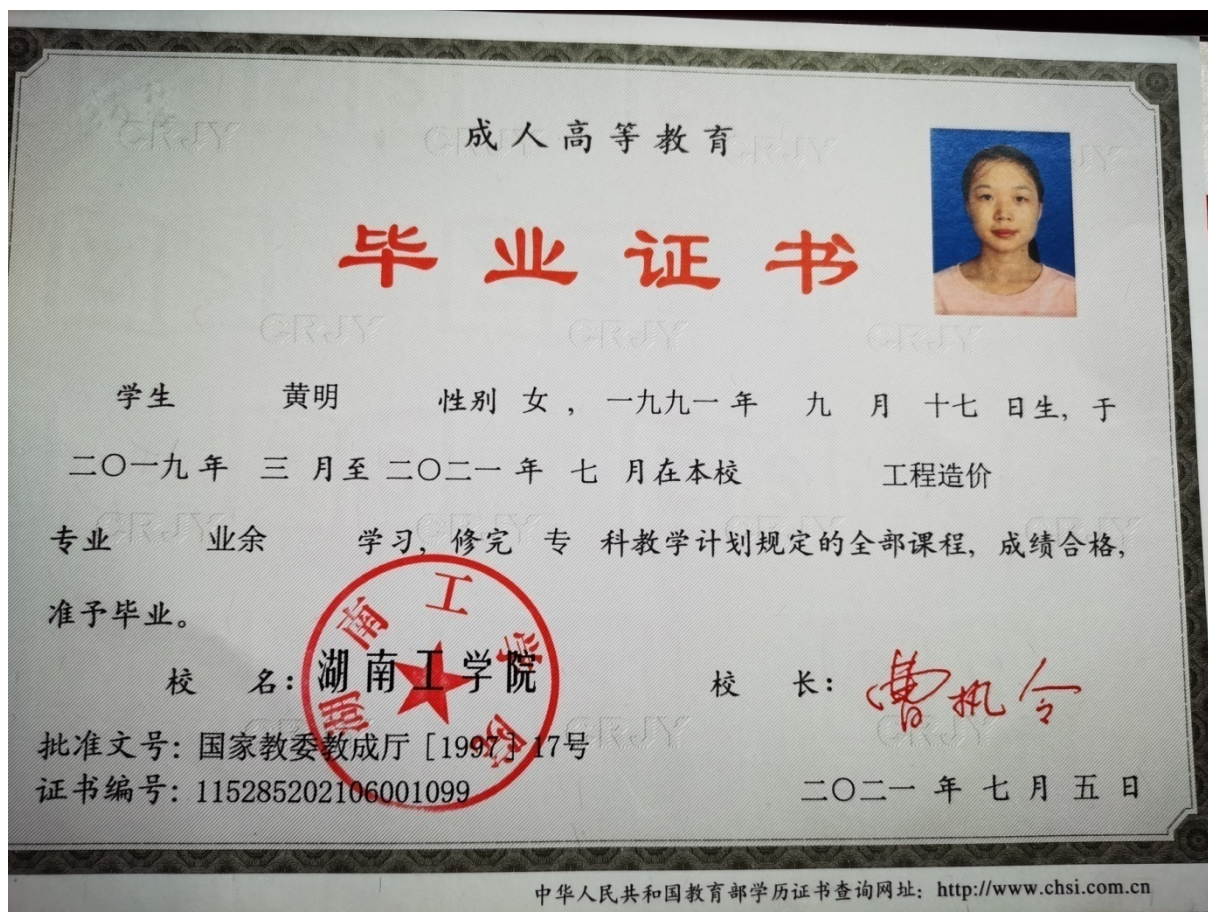 成人高等教育
毕业证书
学生 黄明 性别 女，一九九一年 九 月 十七 日生，于
二〇一九年 三 月至二〇二一年 七 月在本校 工程造价
专业 业余 学习，修完 专 科教学计划规定的全部课程，成绩合格，
准予毕业。
湖南工学院
校 名：湖南工学院 校 长：曹执令
批准文号：国家教委教成厅［1997］17号
证书编号：115285202106001099 二〇二一年 七 月 五 日
中华人民共和国教育部学历证书查询网址：http://www.chsi.com.cn
CRJY